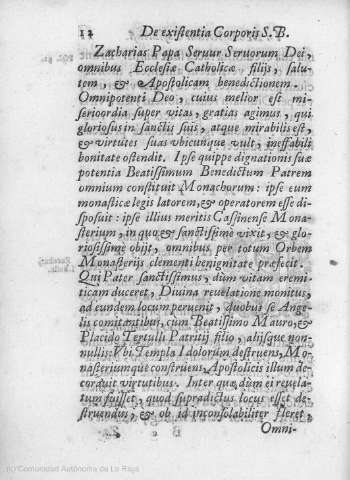 12 De existentia Corporis S.B.
Zacharias Papa Seruur Seruorum Dei,
omnibus Ecclesiæ Catholicæ filijs, salu-
tem, & Apostolicam benedictionem.
Omnipotenti Deo, cuius melior est mi-
serioordia super vitas, gratias agimus, qui
gloriosus in sanctis suis, atque mirabilis est,
& virtutes suas vbicunque vult, ineffabili
bonitate ostendit. Ipse quippe dignationis suæ
potentia Beatissimum Benedictum Patrem
omnium constituit Monachorum: ipse eum
monasticæ legis latorem, & operatorem esse di-
sposuit: ipse illius meritis Cassinense Mona-
sterium, in quo & sanctissimè vixit, & glo-
riosissimè obijt, omnibus per totum Orbem
Monasterijs clementi benignitate præfecit.
Qui Pater sanctissimus, dum vitam eremi-
ticam duceret, Diuina reuelatione monitus,
ad eundem locum peruenit, duobus se Ange-
lis comitantibus, cum Beatissimo Mauro, &
Placido Tertulli Patritij filio, alijsque non-
nullis: Vbi Templa Idolorum destruens, Mo-
nasteriumque construens, Apostolicis illum de-
corauit virtutibus. Inter quæ, dum ei reuela-
tum fuisset, quod supradictus locus esset de-
struendus, & ob id inconsolabiliter fleret,
Omni-
(c) Comunidad Autónoma de La Rioja